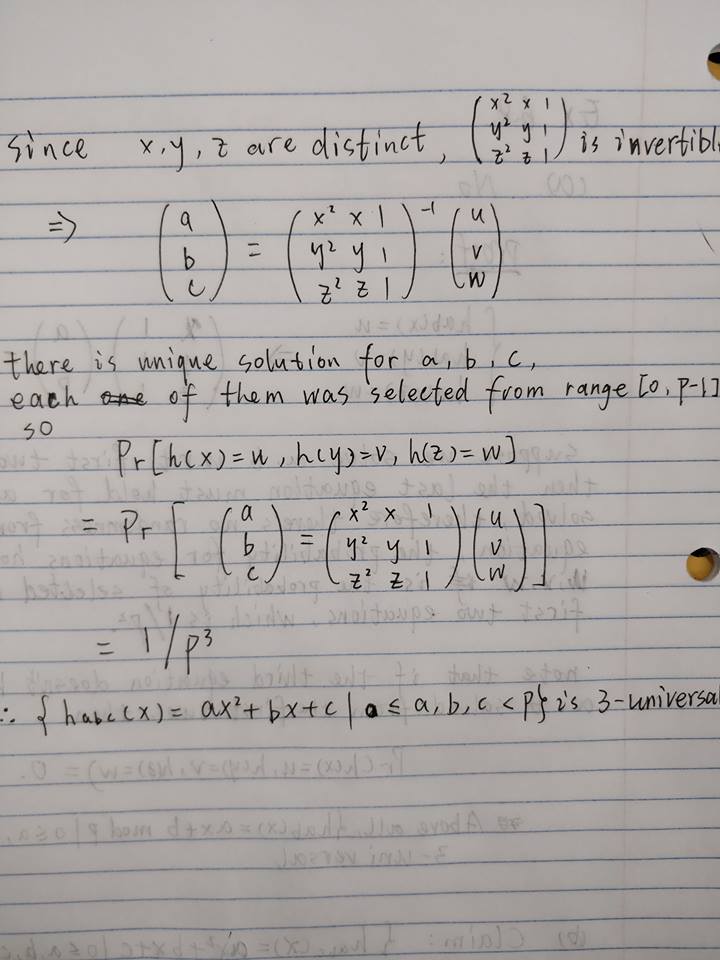 since x, y, z are distinct, (x² x 1
y² y 1
z² z 1) is invertibl
=> (a
b
c) = (x² x 1
y² y 1
z² z 1)⁻¹ (u
v
w)
there is unique solution for a, b, c,
each of them was selected from range [0, p-1]
so
Pr[h(x)=u, h(y)=v, h(z)=w]
= Pr [ (a
b
c) = (x² x 1
y² y 1
z² z 1) (u
v
w) ]
= 1/p³
∴ { habc(x) = ax²+bx+c | 0 ≤ a, b, c < p} is 3-universal